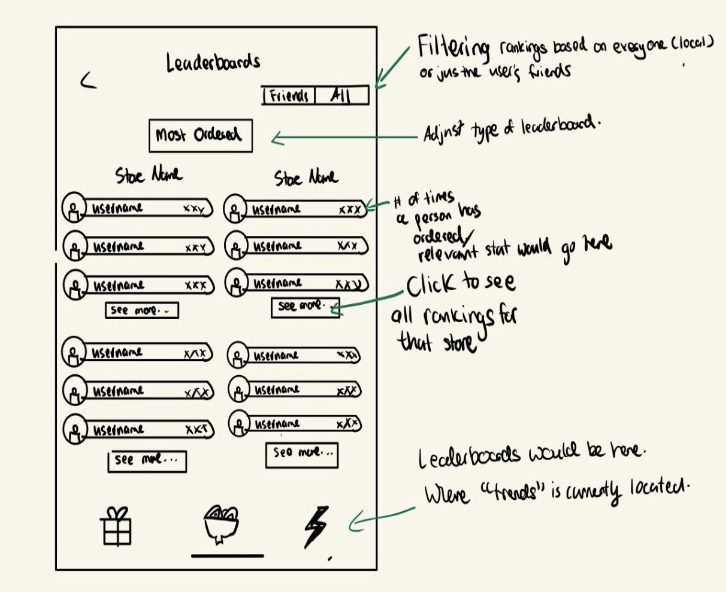 Leaderboards
<
Friends | All
Most Ordered
Store Name
Store Name
username xxx
username xxx
username xxx
username xxx
username xxx
username xxx
see more...
see more..
username xxx
username xxx
username xxx
username xxx
username xxx
username xxx
see more...
see more...
Filtering rankings based on everyone (local)
or just the user's friends
Adjust type of leaderboard.
# of times
a person has
ordered/
relevant stat would go here
Click to see
all rankings for
that store
Leaderboards would be here.
Where "trends" is currently located.